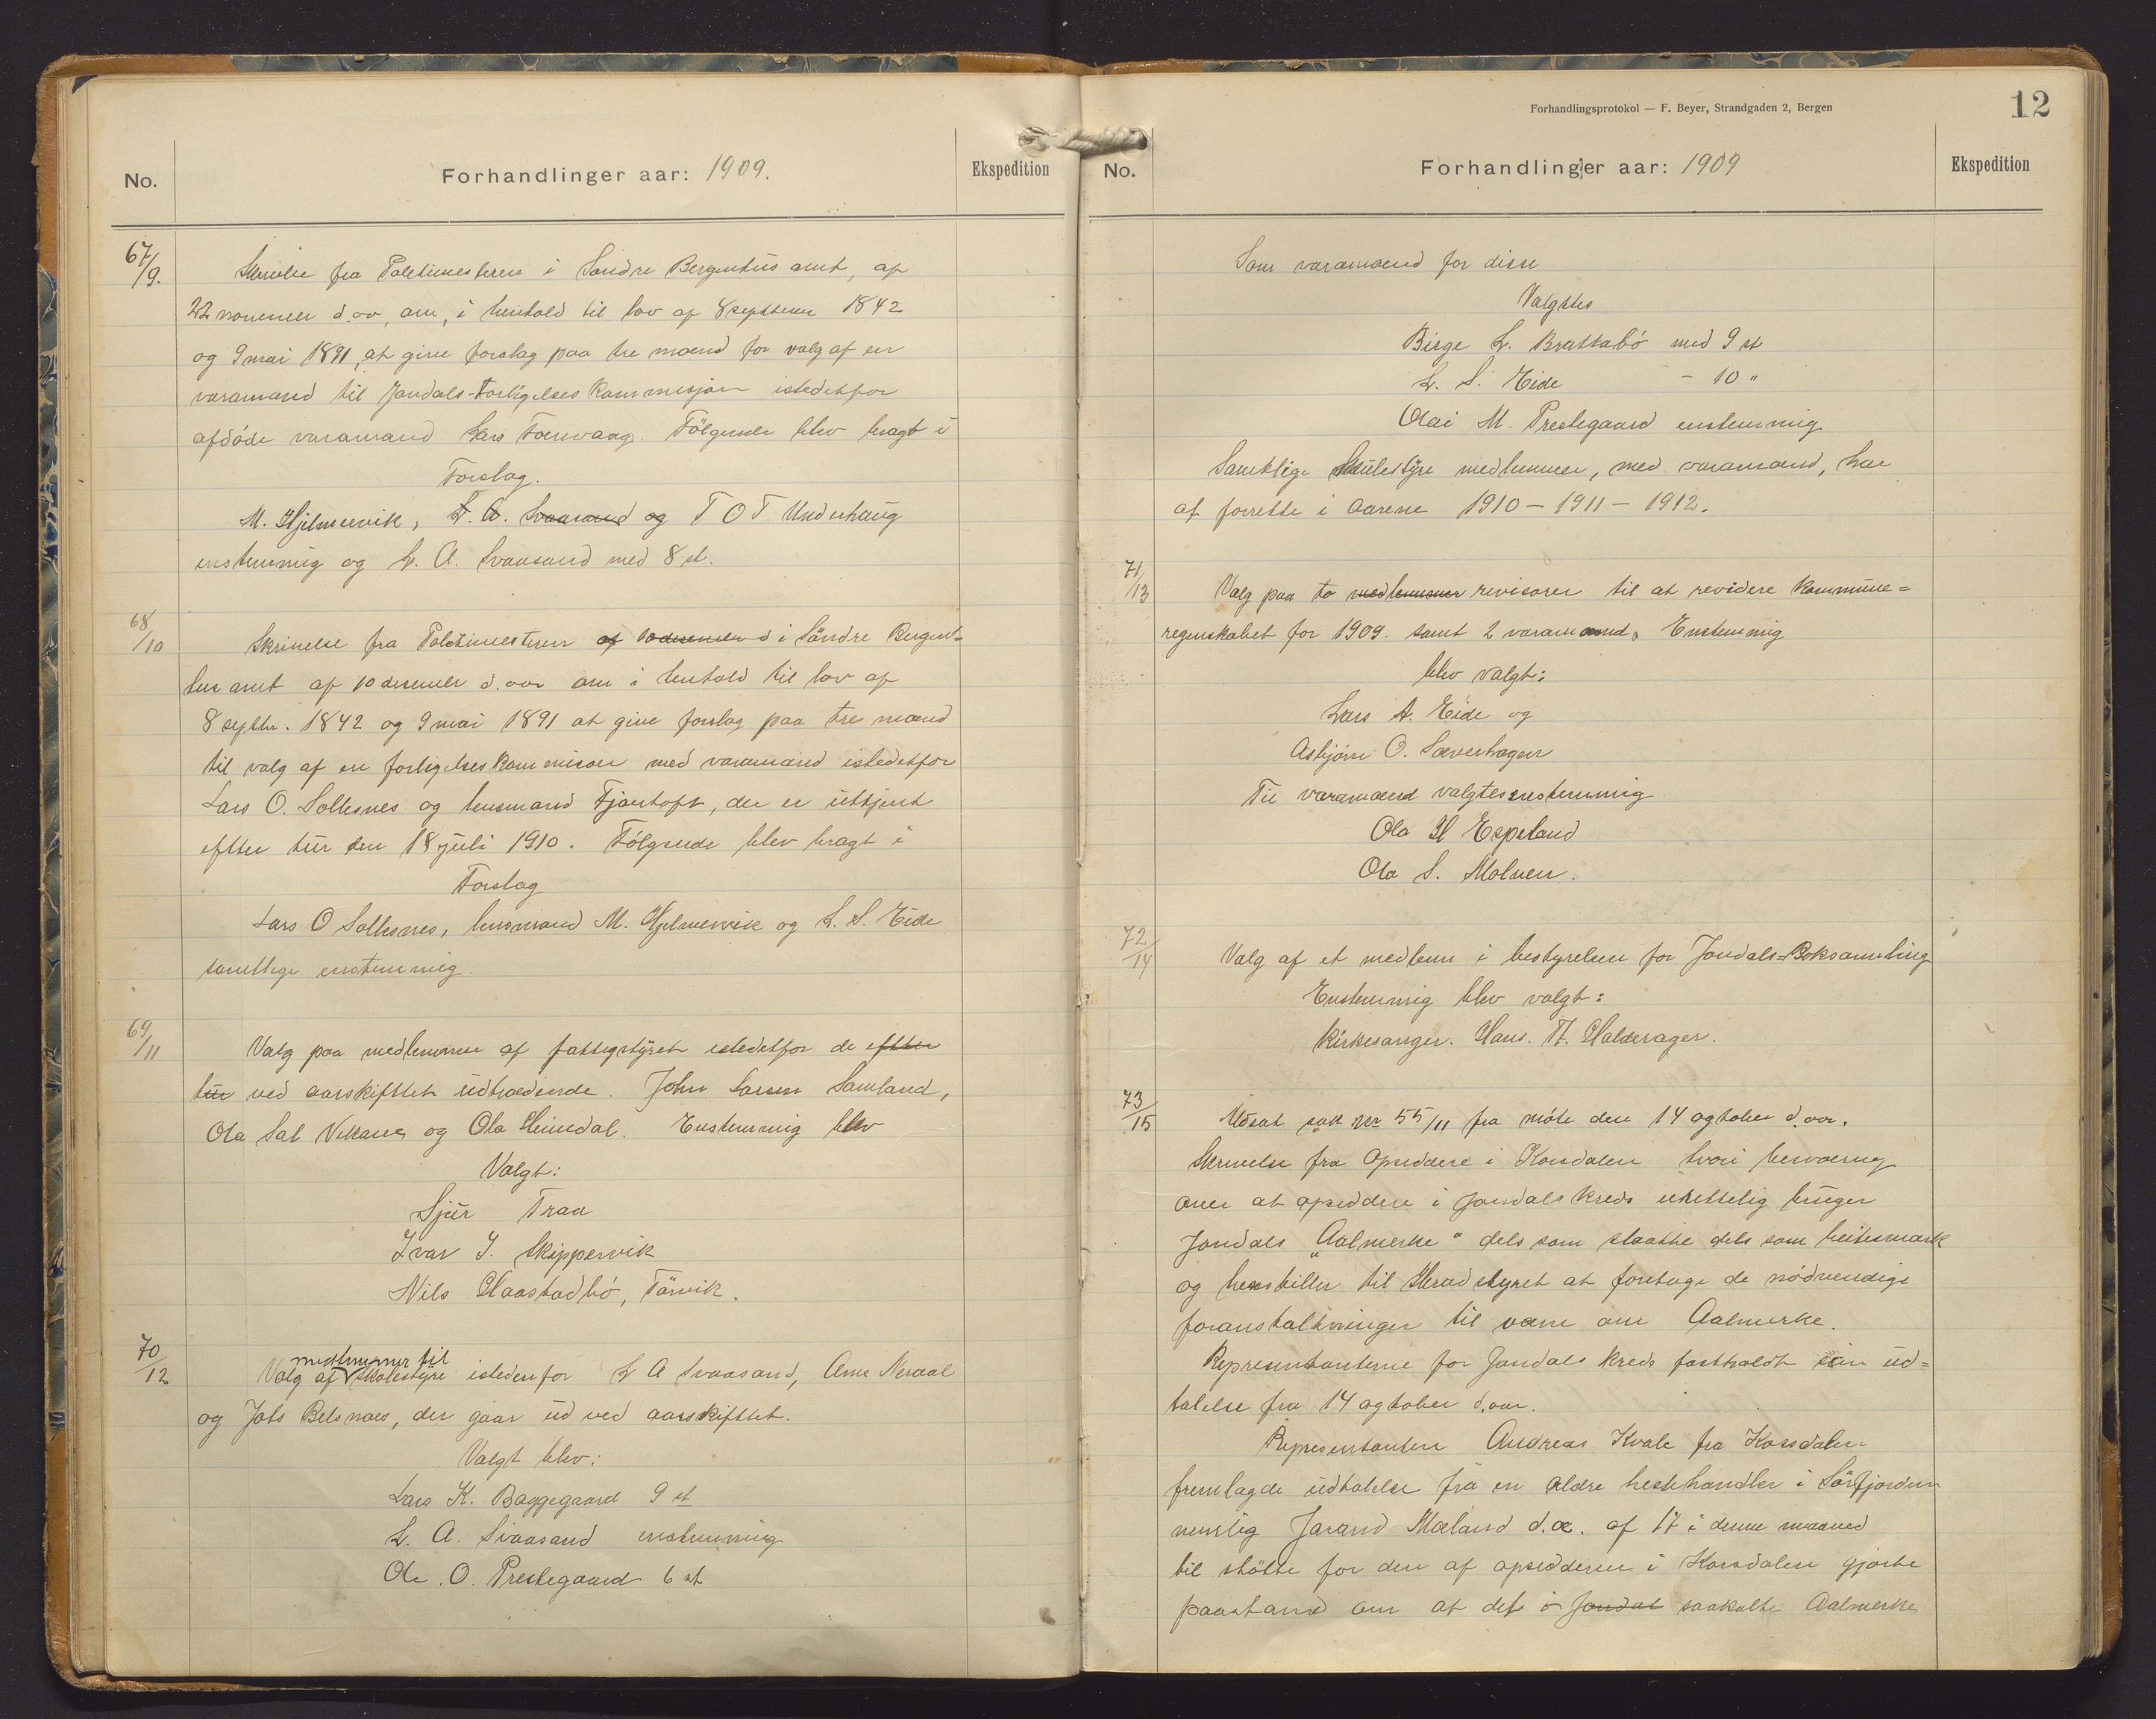 No.
Forhandlinger aar: 1909.
Ekspedition
67/9.
Skrivelse fra Politimesteren i Søndre Bergenhus amt, af
22 november d.aa, om, i henhold til lov af 8 septbem 1842
og 9 mai 1891, at give forslag paa tre mænd for valg af en
varamand til Jondals-Forligelseskommisjon istedetfor
afdøde varamand Lars Torsvaag. Følgende blev bragt i
Forslag.
M. Hjelmervik, L. A. Svaasand og T O T Underhaug
enstemmig og L. A. Svaasand med 8 st.
68/10
Skrivelse fra Politimesteren af 10 desember d i Søndre Bergen-
hus amt af 10 desember d.aar om i henhold til lov af
8 septbr. 1842 og 9 mai 1891 at give forslag paa tre mænd
til valg af en forligelseskommisær med varamand istedetfor
Lars O. Sollesnes og lensmand Fjærtoft, der er uttjent
efter tur den 18 juli 1910. Følgende blev bragt i
Forslag
Lars O Sollesnes, lensmand M. Hjelmervik og L. S. Eide
samtlige enstemmig.
69/11
Valg paa medlemmer af fattigstyret istedetfor de efter
tur ved aarskiftet udtrædende. John Larsen Samland,
Ola Sal Vikane og Ola Heimdal. Enstemmig blev
Valgt:
Sjur Traa
Ivar J. Skippervik
Nils Haastadbø, Tørvik.
70/12
medlemmer til
Valg af skolestyre istedenfor L A Svaasand, Arne Neraal
og Jats Belsnæs, der gaar ud ved aarskiftet.
Valgt blev:
Lars K. Baggegaard 9 st
L. A. Svaasand enstemmig
Ole. O. Prestegaard 6 st.
Forhandlingsprotokol — F. Beyer, Strandgaden 2, Bergen
12
No.
Forhandlinger aar: 1909
Ekspedition
Som varamænd for disse
Valgtes
Birge L. Brattabø med 9 st
L. S. Eide - 10 "
Olai M. Prestegaard enstemmig
Samtlige Skulestyre medlemmer, med varamænd, har
at forrette i aarene 1910 – 1911 – 1912.
71/13
Valg paa to medlemmer revisorer til at revidere kommune=
regnskabet for 1909. samt 2 varamænd. Enstemmig
blev valgt:
Lars A. Eide og
Asbjørn O. Sæverhagen
Til varamænd valgtes enstemmig
Ola H Espeland
Ola S. Molven.
72/14
Valg af et medlem i bestyrelsen for Jondals=Boksamling
Enstemmig blev valgt:
Kirkesanger. Hans. A. Halderager.
73/15
Udsat sak nr 55/11 fra møte den 14 ogtober d.aar.
Skrivelse fra Opsiddere i Korsdalen hvori besværing
over at opsiddere i Jondals kreds urettelig bruger
Jondals „Aalmerke" dels som slaatte dels som beitesmark
og henstiller til Heradstyret at foretage de nødvendige
foranstaltninger til værn om Aalmerke.
Representanterne for Jondals kreds fastholdt sin ud=
talelse fra 14 ogtober d.aar.
Representanten Andreas Kvale fra Korsdalen
fremlagde udtalelse fra en ældre hestehandler i Sørfjorden
nemlig Jarand Mæland d.æ. af 17 i denne maaned
til støtte for den af opsidderne i Korsdalen gjorte
paastand om at det i Jondal saakalte Aalmerke